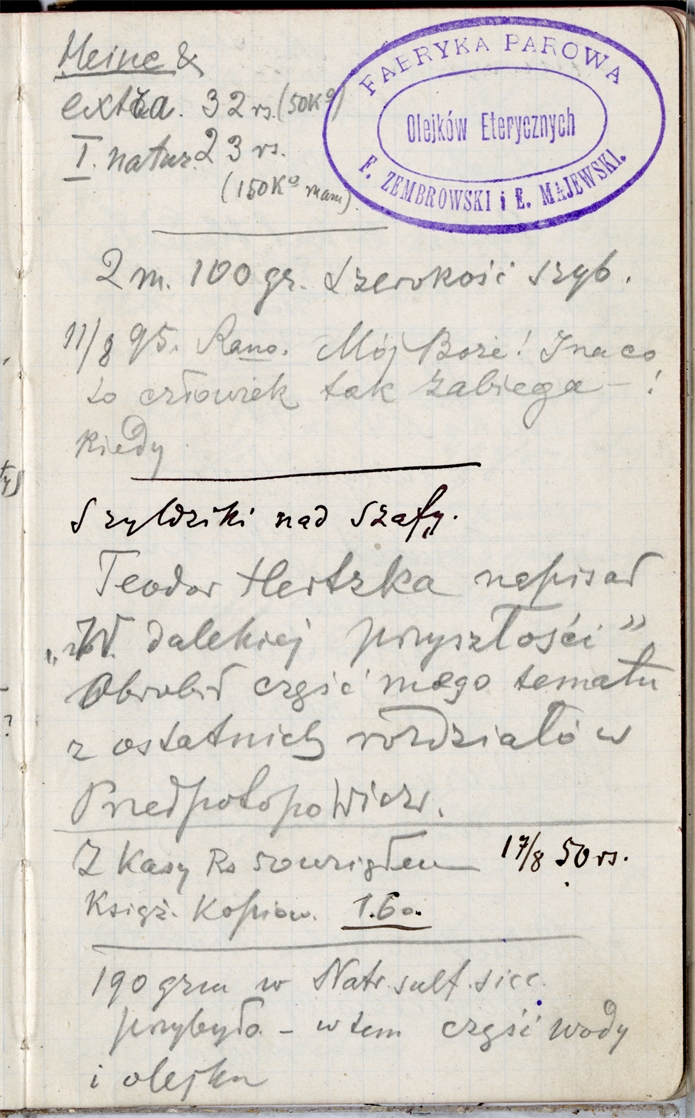 Heine &
extra. 32 rs. (50K°)
I. natur. 23 rs.
(150K° mam)
FABRYKA PAROWA
Olejków Eterycznych
F. ZEMBROWSKI i E. MAJEWSKI.
2 m. 100 gr. Szerokość szyb.
11/8 95. Rano. Mój Boże! I na co
to człowiek tak zabiega – !
kiedy
Szyldziki nad szafy.
Teodor Hertzka napisał
„W dalekiej przyszłości”
Obrobił część mego tematu
z ostatnich rozdziałów
Przedpotopowiczów.
Z Kasy Rs 50 wziąłem 17/8 50 rs.
Książ. Kopiow. 1.60.
190 grm w Natr. sulf. sicc.
przybyło – w tem część wody
i olejku